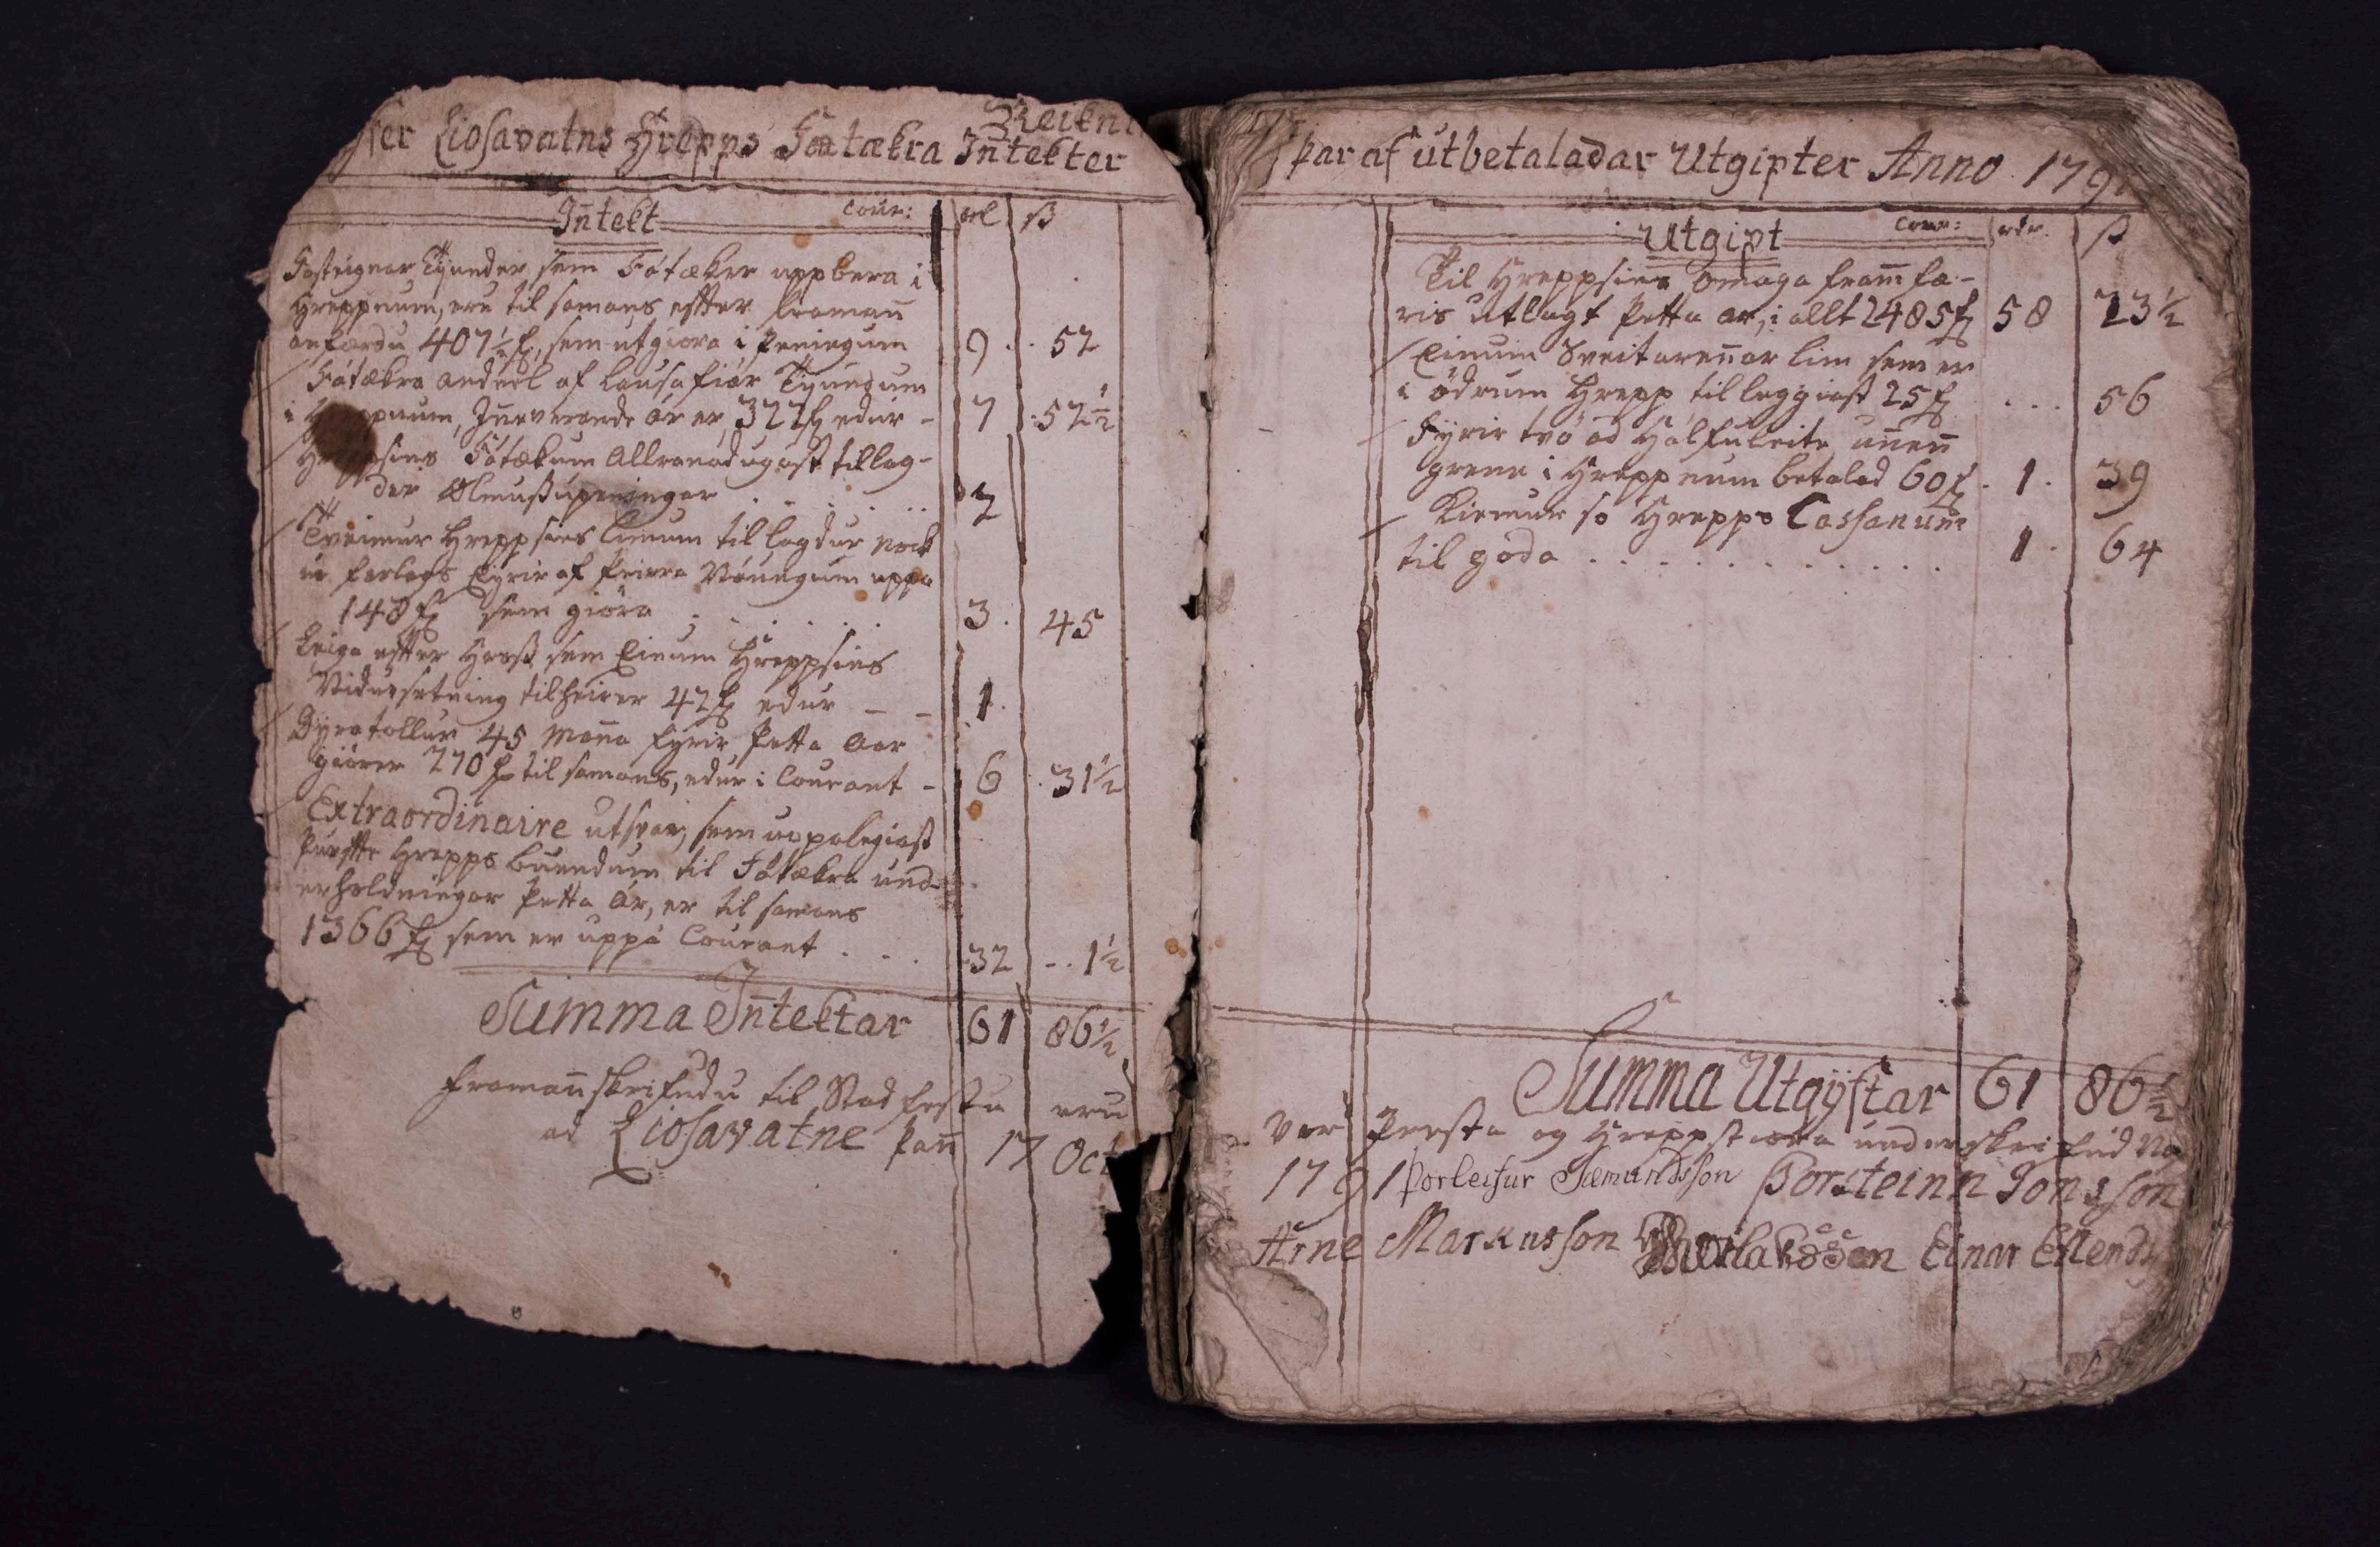 Reikni
yfer Liosavatns Hrepps Fátækra Inntekter
Inntekt Cour: rdl ß
Fasteignar Tyunder sem Fátæker uppbera i
Hreppnum, eru til samans effter framann
anfærdu 407½ f, sem utgiora i peningum 9 . . 52
Fátækra andeel af lausafiár Tyundum
i Hreppnum, Inneverande ár er, 322 f edur - 7 . 52½
Hreppsins Fátækum Allranadugast tillag-
der Ølmusupeningar . . . . . 2
Tveimur Hreppsins limum tillagdur nock
ur forlags Eyrir af þeirra Vøungum uppa
148 f sem giöra . . . . . 3 . 45
Leiga effter Hross sem Einum Hreppsins
Nidursetning tilheirer 42 f edur - - 1 .
Dyratollur 45 manna fyrir þetta Aar
giörer 270 f til samans, edur i Courant - 6 . 31½
Extraordinaire utsvar, sem uppalegiast
þurffte Hrepps buendum til Fátækra und-
erholdningar þetta ár, er til samans
1366 f sem er uppá Courant . . . 32 - . . 1½
Summa Inntektar 61 86½
framannskrifudu til Stadfestu eru
ad Liosavatne þann 17 Oct
þar af utbetaladar Utgipter Anno 1791
Utgipt Cour: rdr. ß
Til Hreppsins Omaga framfæ-
ris utlagt þetta ar, i allt 2485 f 58 23½
Einum Sveitarennar lim sem er
i ödrum Hrepp tilleggiast 25 f . . . 56
Fyrir tvö ad Hálfuleite
i Hreppnum betalad 60 f . 1 . 39
Kiemur so Hrepps Cassanum
til goda . . . . . . . . . . . . 1 . 64
Summa Utgÿftar 61 86½
Vor Presta og Hreppstiora underskrifud
1791 Þorleifur Sæmundsson Þorsteinn Jonsson
Arne Markusson Einar Erlends